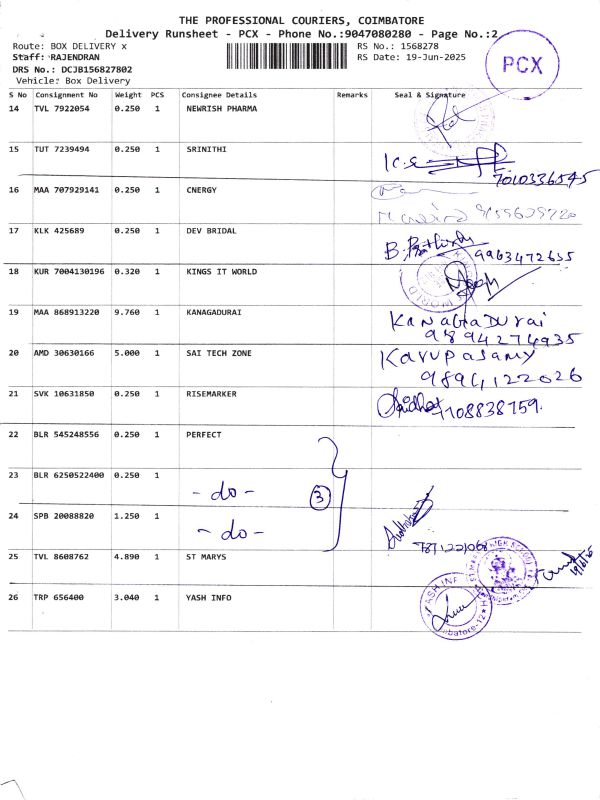 THE PROFESSIONAL COURIERS, COIMBATORE
Delivery Runsheet - PCX - Phone No.:9047080280 - Page No.:2
Route: BOX DELIVERY x RS No.: 1568278
Staff: RAJENDRAN RS Date: 19-Jun-2025
DRS No.: DCJB156827802
Vehicle: Box Delivery
PCX
S No Consignment No Weight PCS Consignee Details Remarks Seal & Signature
14 TVL 7922054 0.250 1 NEWRISH PHARMA
15 TUT 7239494 0.250 1 SRINITHI
7010336545
16 MAA 707929141 0.250 1 CNERGY
17 KLK 425689 0.250 1 DEV BRIDAL
9963472635
18 KUR 7004130196 0.320 1 KINGS IT WORLD
19 MAA 868913220 9.760 1 KANAGADURAI KANAGADURAI
9894274935
20 AMD 30630166 5.000 1 SAI TECH ZONE Karupasamy
9894122026
21 SVK 10631850 0.250 1 RISEMARKER
7708838759.
22 BLR 545248556 0.250 1 PERFECT
23 BLR 6250522400 0.250 1 - do - 3
24 SPB 20088820 1.250 1 - do -
25 TVL 8608762 4.890 1 ST MARYS
26 TRP 656400 3.040 1 YASH INFO